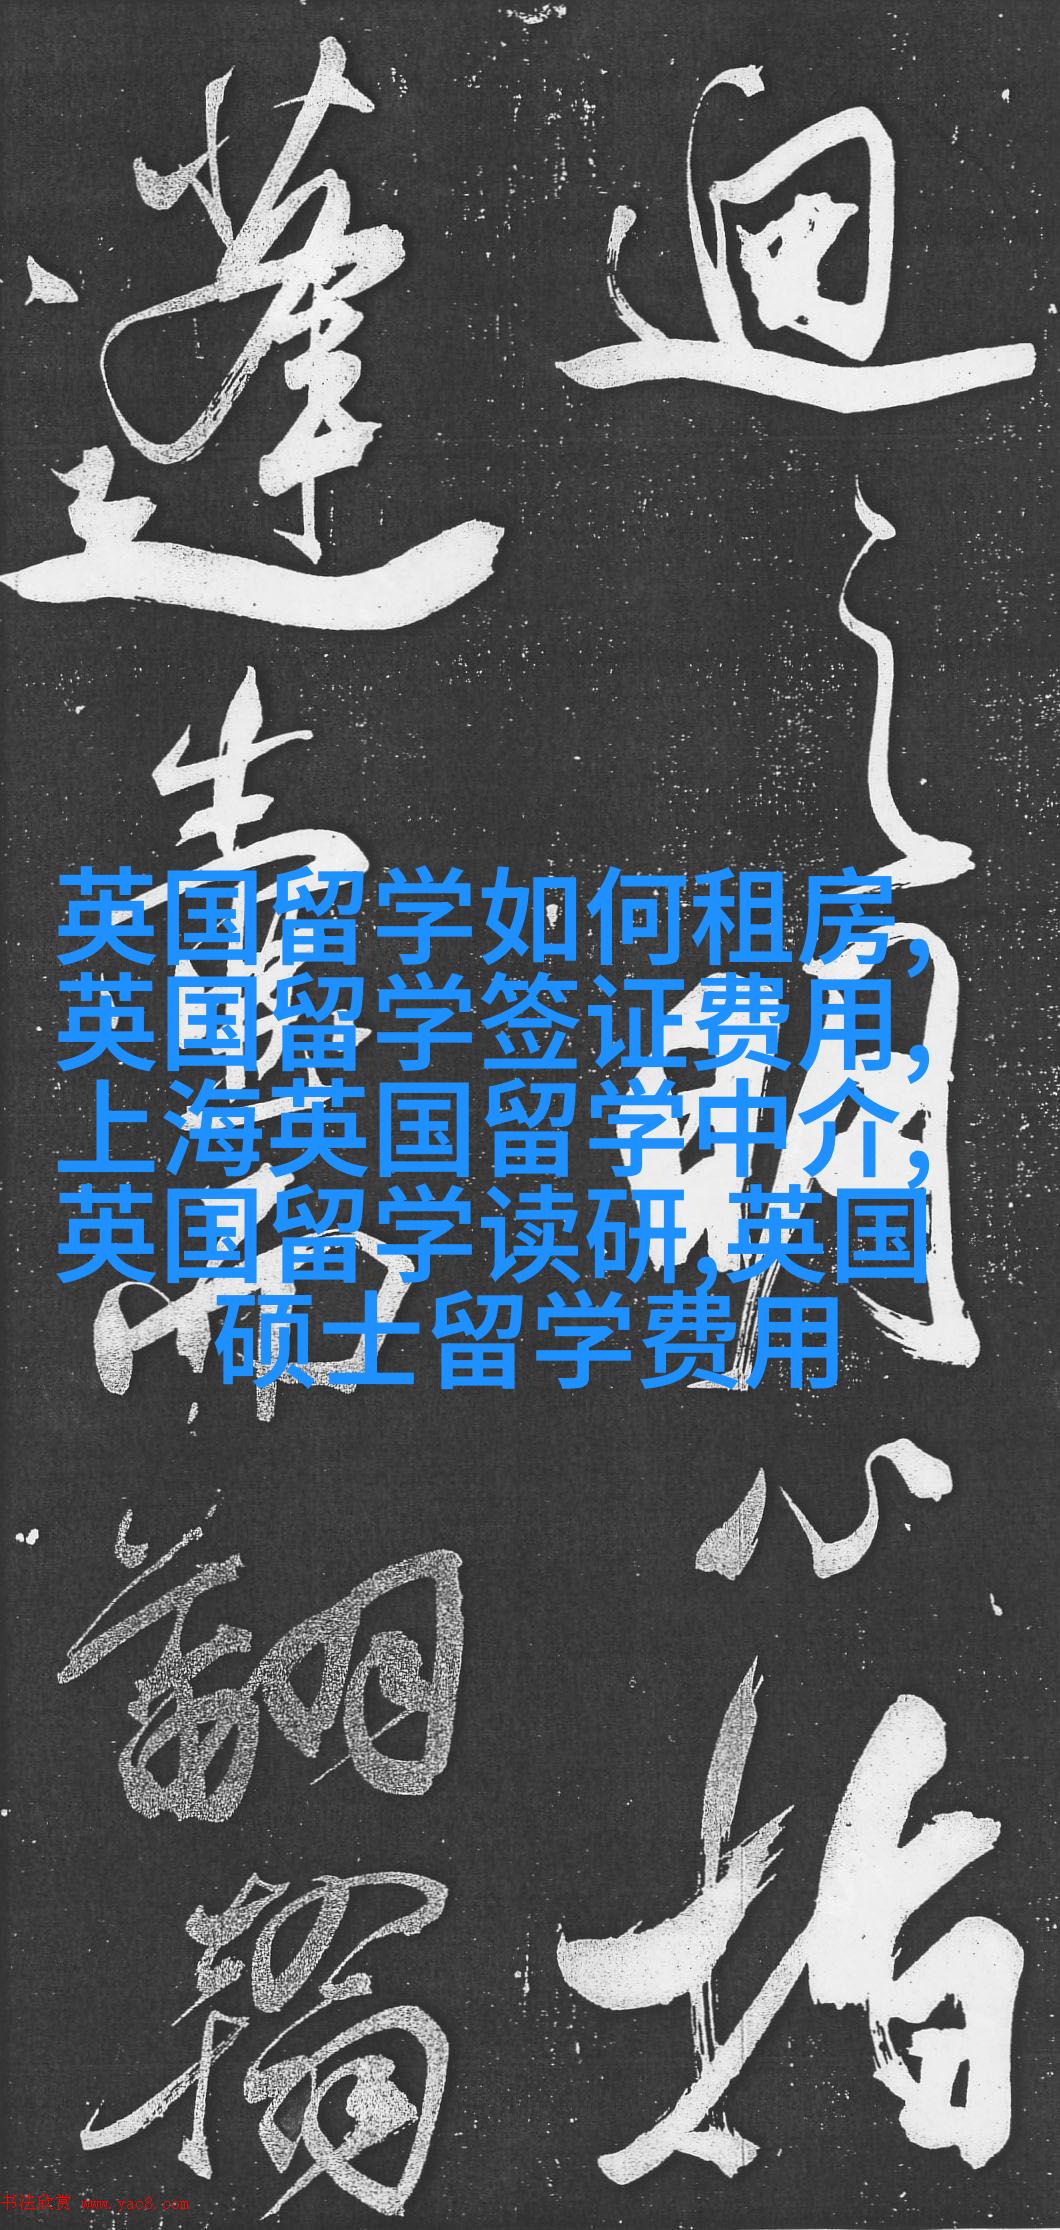 迴
之
明
心
指
蓬
壺
而
翻
翰
英国留学如何租房,
英国留学签证费用,
上海英国留学中介,
英国留学读研,英国
硕士留学费用
书法欣赏 www.yac8.com